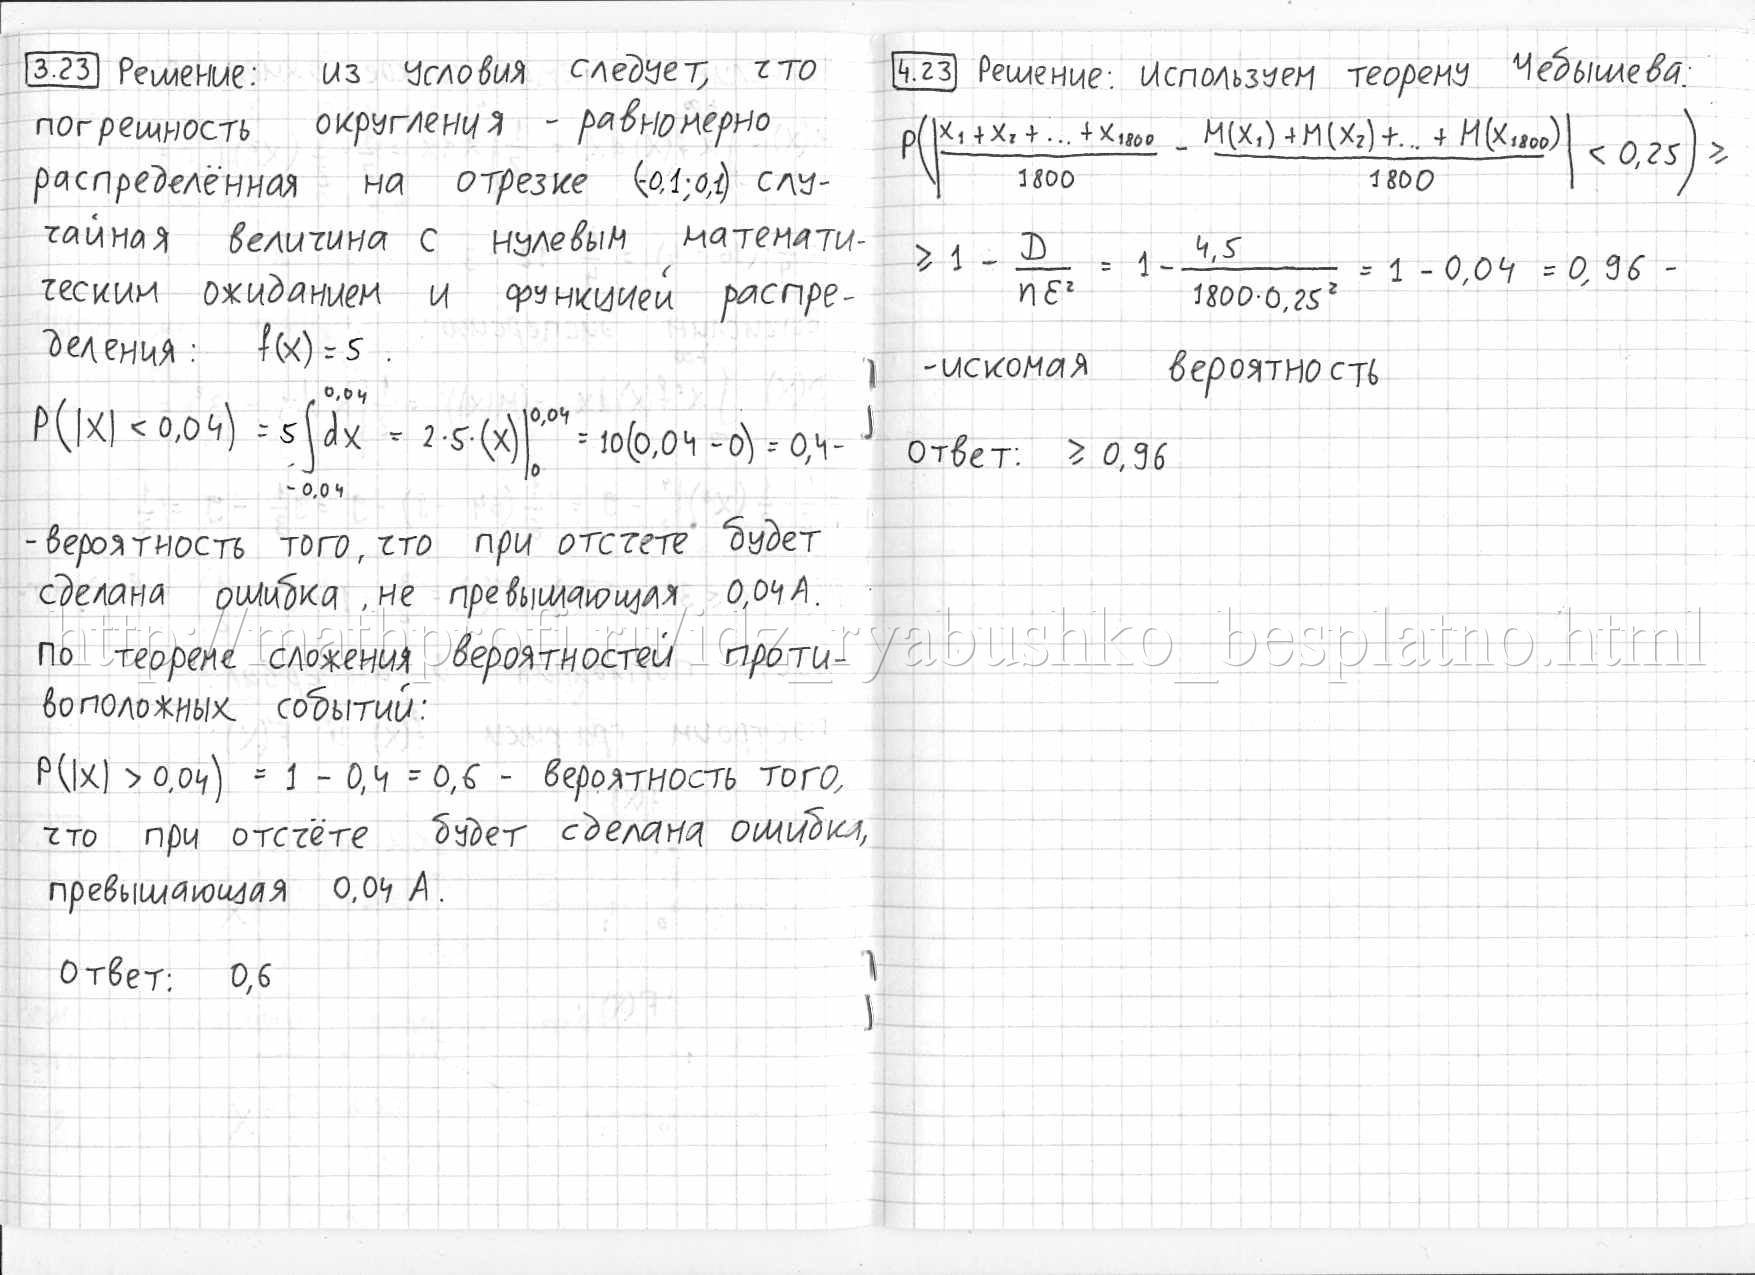 3.23 Решение: из условия следует, что
погрешность округления - равномерно
распределённая на отрезке (-0,1;0,1) слу-
чайная величина с нулевым математи-
ческим ожиданием и функцией распре-
деления: f(x) = 5 .
P(|X| < 0,04) = 5 ∫_{-0,04}^{0,04} dx = 2·5·(x)|_0^{0,04} = 10(0,04 - 0) = 0,4 -
- вероятность того, что при отсчете будет
сделана ошибка, не превышающая 0,04 А.
По теореме сложения вероятностей проти-
воположных событий:
P(|X| > 0,04) = 1 - 0,4 = 0,6 - вероятность того,
что при отсчёте будет сделана ошибка,
превышающая 0,04 А.
Ответ: 0,6
4.23 Решение: Используем теорему Чебышева:
P(|(X₁ + X₂ + ... + X₁₈₀₀)/1800 - (M(X₁) + M(X₂) + ... + M(X₁₈₀₀))/1800| < 0,25) ≥
≥ 1 - D/(nε²) = 1 - 4,5/(1800·0,25²) = 1 - 0,04 = 0,96 -
- искомая вероятность
Ответ: ≥ 0,96
http://mathprofi.ru/idz_ryabushko_besplatno.html